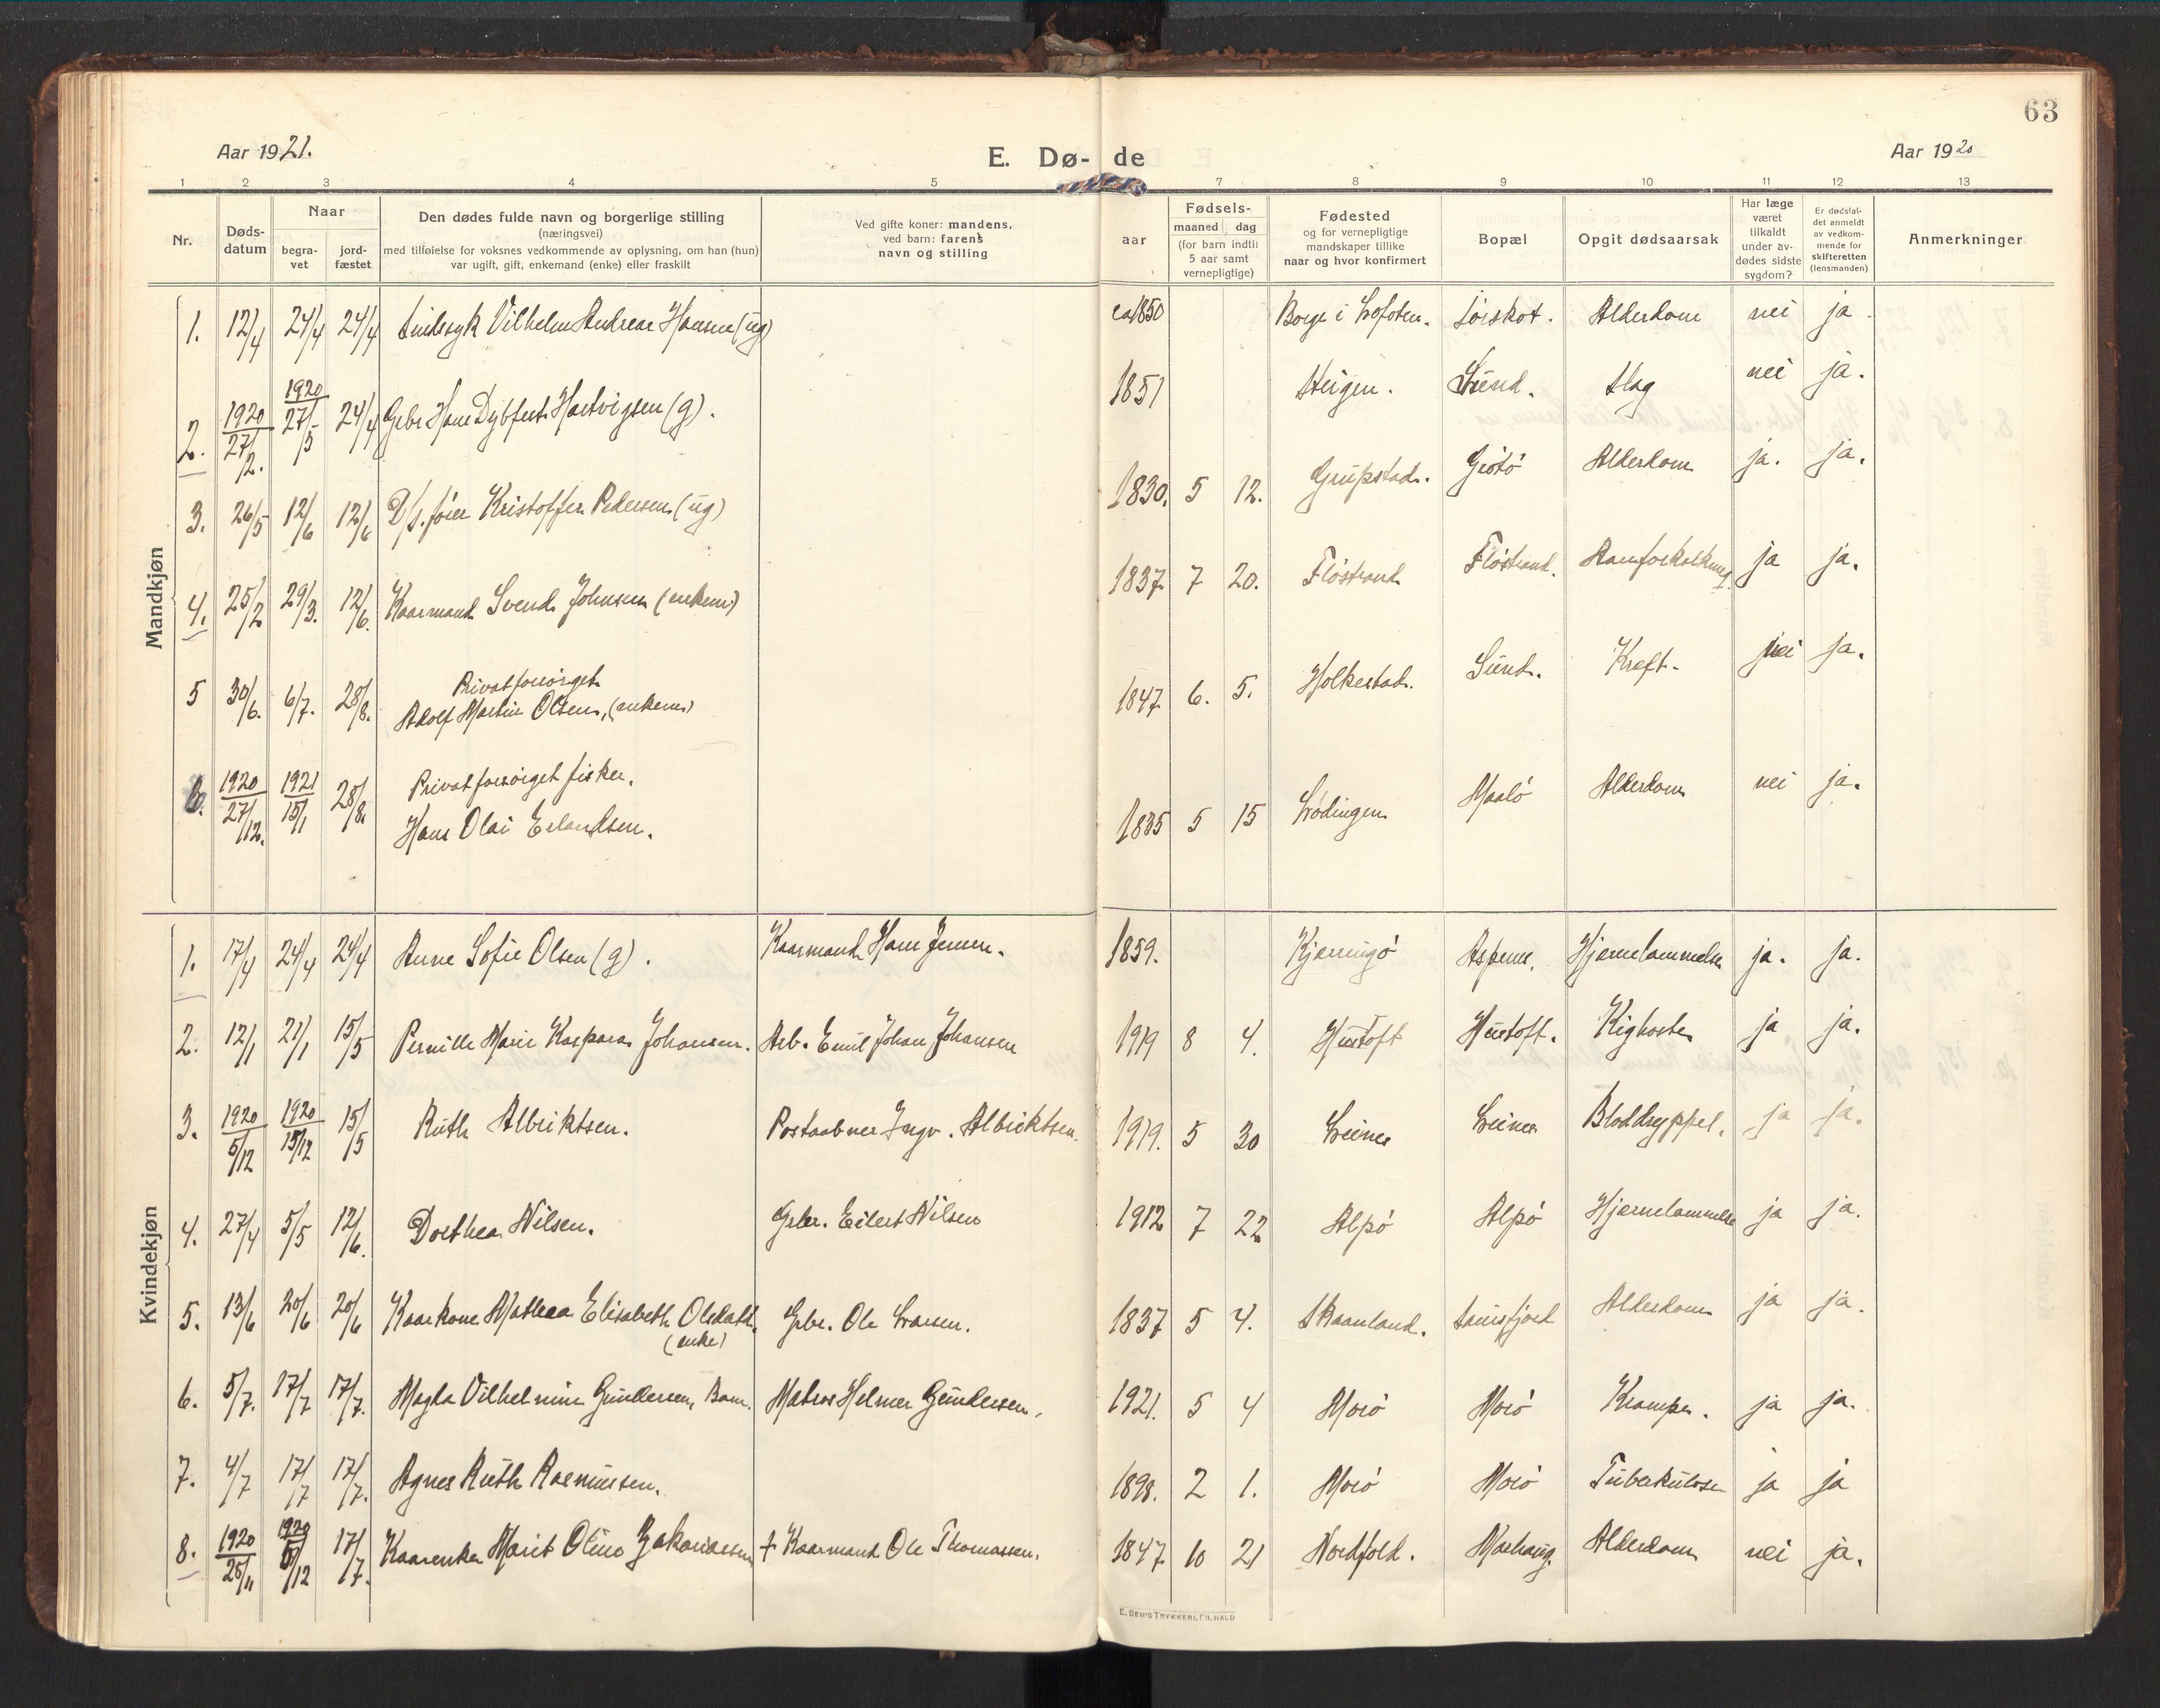 63
Aar 1921.
E. Dø- de
Aar 1920
1 2 3 4 5 7 8 9 10 11 12 13
Nr.
Døds-
datum
Naar
begra-
vet
jord-
fæstet
Den dødes fulde navn og borgerlige stilling
(næringsvei)
med tilføielse for voksnes vedkommende av oplysning, om han (hun)
var ugift, gift, enkemand (enke) eller fraskilt
Ved gifte koner: mandens,
ved barn: farens
navn og stilling
aar
Fødsels-
maaned dag
(for barn indtil
5 aar samt
vernepligtige)
Fødested
og for vernepligtige
mandskaper tillike
naar og hvor konfirmert
Bopæl
Opgit dødsaarsak
Har læge
været
tilkaldt
under av-
dødes sidste
sygdom?
Er dødsfal-
det anmeldt
av vedkom-
mende for
skifteretten
(lensmanden)
Anmerkninger
Mandkjøn
1. 12/4 24/4 24/4 Sindssyk Vilhelm Andreas Hansen (ug) ca 1850 Borge i Lofoten. Sørskot. Alderdom nei ja.
2. 1920 27/2. 1920 27/5 24/4 Gbr Hans Dybfest Hartvigsen (g). 1851 Steigen. Sund. Slag nei ja.
3. 26/5 12/6 12/6 Kristoffer Pedersen (ug) 1830. 5 12. Grupstad. Grøtø Alderdom ja. ja.
4. 25/2 29/3. 12/6. Kaarmand Svend Johnsen (enkem) 1837 7 20. Fløstrand Fløstrand. Aareforkalkning ja ja.
5 30/6. 6/7. 28/8. Privat forsørget
Adolf Martin Olsen, (enkem) 1847 6. 5. Holkestad. Sund. Kræft. nei ja.
6. 1920 27/12. 1921 15/1 28/8. Privat forsørget fisker.
Hans Olai Erlandsen. 1835 5 15 Lødingen Maalø Alderdom nei ja.
Kvindekjøn
1. 17/4 24/4 24/4 Anne Sofie Olsen (g). Kaarmand Hans Jensen. 1859. Kjerringø Aspenes. Hjernelammelse ja. ja.
2. 12/1 21/1 15/5 Pernille Marie Kaspara Johansen. Arb. Emil Johan Johansen 1919 8 4. Hustoft Hustoft. Kighoste ja ja.
3. 1920 5/12 1920 15/12 15/5 Ruth Albriktsen. Postaabner Ingv. Albriktsen. 1919. 5 30 Leines Leines Bloddryppel. ja ja.
4. 27/4 5/5 12/6. Dorthea Nilsen. Gbr. Eilert Nilsen 1912 7 22 Alpø Alpø Hjernelammelse ja ja.
5. 13/6 20/6 20/6 Kaarkone Mathea Elisabeth Olsdatt.
(enke) Gbr. Ole Larsen. 1837 5 4. Skaanland. Alderdom ja ja.
6. 5/7. 17/7 17/7. Magda Vilhelmine Gundersen, Barn. Matros Helmer Gundersen. 1921. 5 4 Morø Morø Krampe. ja ja.
7. 4/7 17/7 17/7. Agnes Ruth Rasmussen. 1898. 2 1. Morø Morø Tuberkulose ja ja
8. 1920 25/11 1920 5/12 17/7. Kaarenke Marit Oline Zakariassen + Kaarmand Ole Thomassen. 1847 10 21 Nordfold. Marhaug. Alderdom nei ja.
E. SEM'S TRYKKERI, FR.HALD